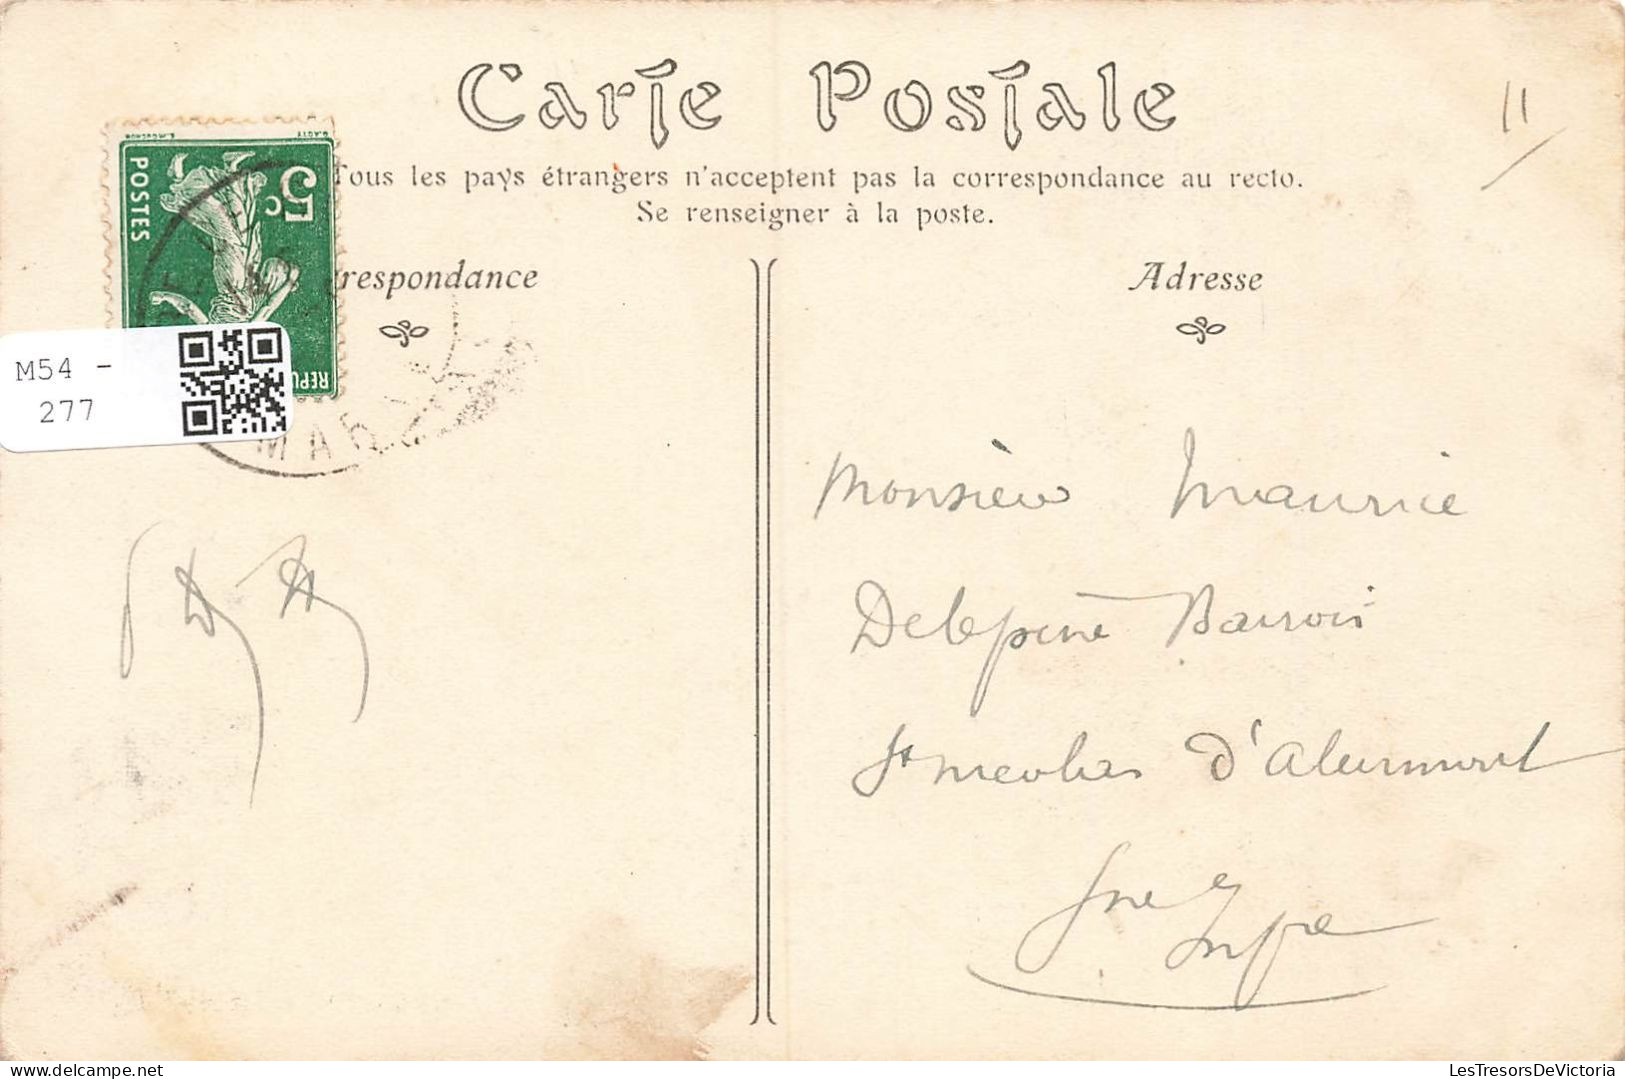 Carte Postale
Tous les pays étrangers n'acceptent pas la correspondance au recto.
Se renseigner à la poste.
respondance
Adresse
E. MOUCHON
POSTES
5c
REPU
MAR
M54 -
277
11
Monsieur Maurice
Delepine Barrois
St nicolas d'aliermont
Sne Infre
LesTresorsDeVictoria